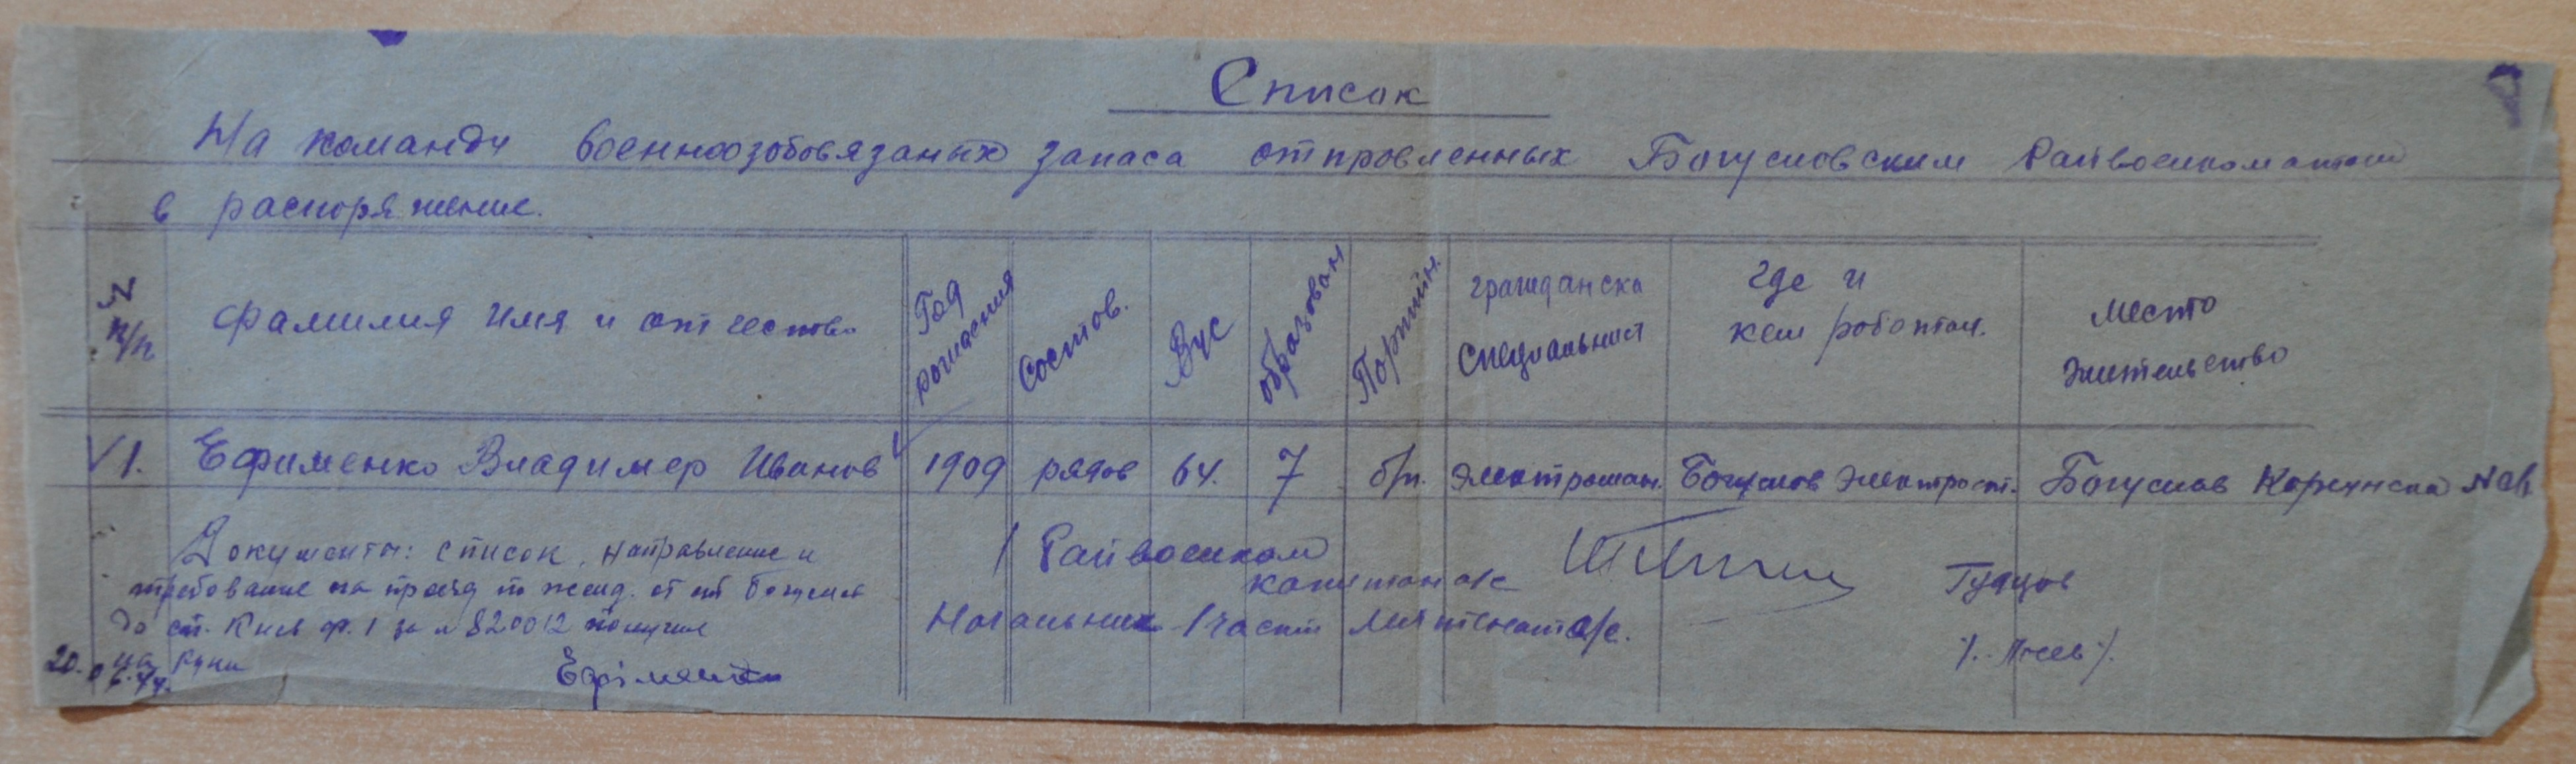 Список
На команду военноозобовязаных запаса отпровленных Богуславским Райвоенкоматом
в распоряжение.
N п/п
Фамилия имя и отчество
Год рождения
Состов.
Вус
образован
Портийн.
гражданска специальност
где и кем роботал.
Место жительство
1. Ефименко Владимер Иванов 1909 рядов 64. 7 б/п. электроман. Богуслов электрост. Богуслав Корсунска
Документы: список, направление и
требование на проезд по желд. от ст Богуслав
до ст. Киев ф. 1 за № 820012 получил
на руки
20. 6. 44.
Ефімен
Райвоенком
капитан а/с
Гудцов
Начальник 1 част Лейтенант а/с.